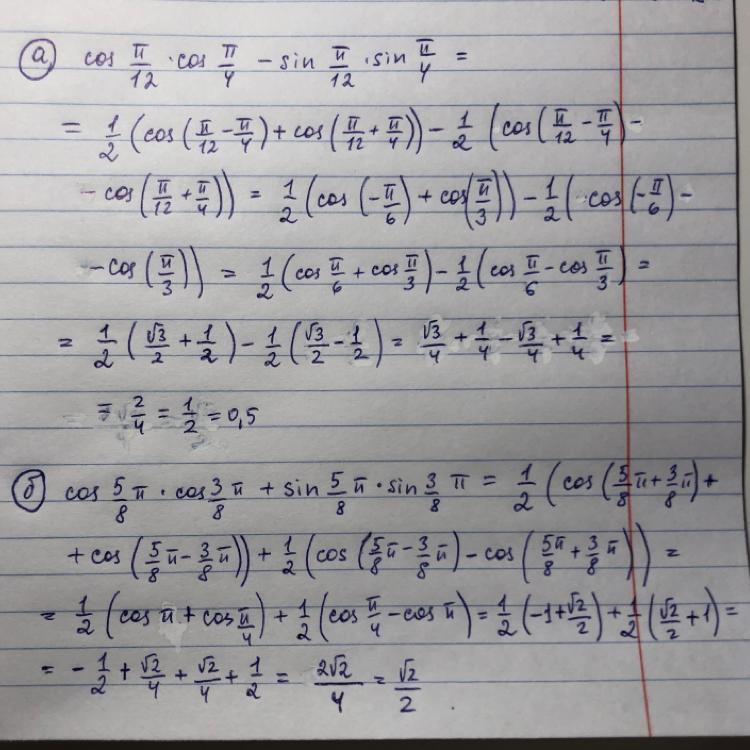 а) cos π/12 · cos π/4 - sin π/12 · sin π/4 =
= 1/2 (cos (π/12 - π/4) + cos (π/12 + π/4)) - 1/2 (cos (π/12 - π/4) -
- cos (π/12 + π/4)) = 1/2 (cos (-π/6) + cos (π/3)) - 1/2 (cos (-π/6) -
- cos (π/3)) = 1/2 (cos π/6 + cos π/3) - 1/2 (cos π/6 - cos π/3) =
= 1/2 (√3/2 + 1/2) - 1/2 (√3/2 - 1/2) = √3/4 + 1/4 - √3/4 + 1/4 =
= 2/4 = 1/2 = 0,5
б) cos 5/8 π · cos 3/8 π + sin 5/8 π · sin 3/8 π = 1/2 (cos (5/8 π + 3/8 π) +
+ cos (5/8 π - 3/8 π)) + 1/2 (cos (5/8 π - 3/8 π) - cos (5π/8 + 3/8 π)) =
= 1/2 (cos π + cos π/4) + 1/2 (cos π/4 - cos π) = 1/2 (-1 + √2/2) + 1/2 (√2/2 + 1) =
= - 1/2 + √2/4 + √2/4 + 1/2 = 2√2/4 = √2/2